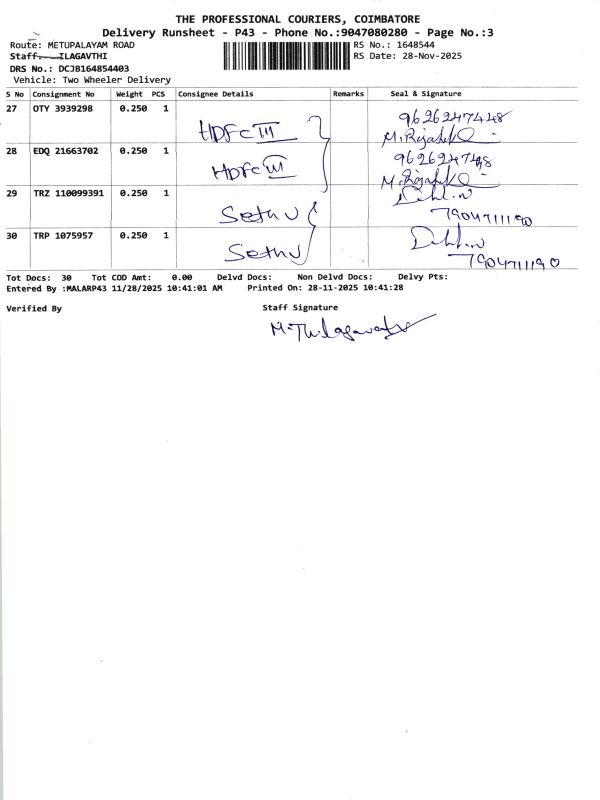 THE PROFESSIONAL COURIERS, COIMBATORE
Delivery Runsheet - P43 - Phone No.:9047080280 - Page No.:3
Route: METUPALAYAM ROAD RS No.: 1648544
Staff: ILAGAVTHI RS Date: 28-Nov-2025
DRS No.: DCJB164854403
Vehicle: Two Wheeler Delivery
S No Consignment No Weight PCS Consignee Details Remarks Seal & Signature
27 OTY 3939298 0.250 1 HDFC III 9626247448
28 EDQ 21663702 0.250 1 HDFC III 9626247448
29 TRZ 110099391 0.250 1 Sethu 7904711190
30 TRP 1075957 0.250 1 Sethu 7904711190
Tot Docs: 30 Tot COD Amt: 0.00 Delvd Docs: Non Delvd Docs: Delvy Pts:
Entered By :MALARP43 11/28/2025 10:41:01 AM Printed On: 28-11-2025 10:41:28
Verified By Staff Signature
M.Thilagavathi